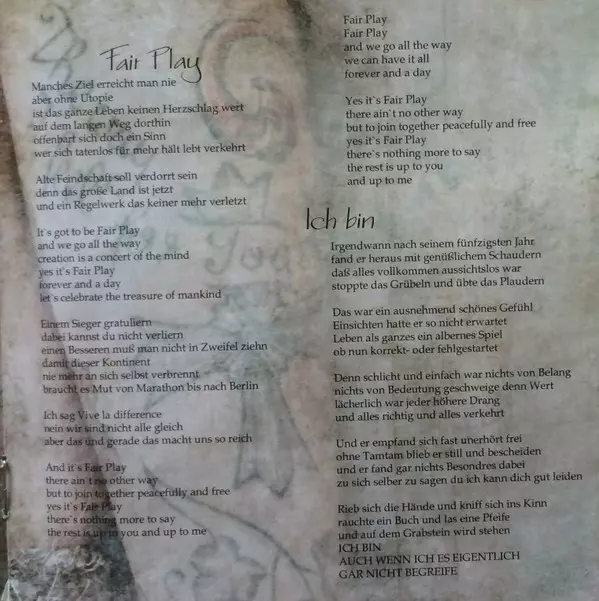 Fair Play
Manches Ziel erreicht man nie
aber ohne Utopie
ist das ganze Leben keinen Herzschlag wert
auf dem langen Weg dorthin
offenbart sich doch ein Sinn
wer sich tatenlos für mehr hält lebt verkehrt
Alte Feindschaft soll verdorrt sein
denn das große Land ist jetzt
und ein Regelwerk das keiner mehr verletzt
It`s got to be Fair Play
and we go all the way
creation is a concert of the mind
yes it`s Fair Play
forever and a day
let`s celebrate the treasure of mankind
Einem Sieger gratuliern
dabei kannst du nicht verliern
einen Besseren muß man nicht in Zweifel ziehn
damit dieser Kontinent
nie mehr an sich selbst verbrennt
braucht es Mut von Marathon bis nach Berlin
Ich sag Vive la difference
nein wir sind nicht alle gleich
aber das und gerade das macht uns so reich
And it`s Fair Play
there ain`t no other way
but to join together peacefully and free
yes it`s Fair Play
there`s nothing more to say
the rest is up to you and up to me
Fair Play
Fair Play
and we go all the way
we can have it all
forever and a day
Yes it`s Fair Play
there ain`t no other way
but to join together peacefully and free
yes it`s Fair Play
there`s nothing more to say
the rest is up to you
and up to me
Ich bin
Irgendwann nach seinem fünfzigsten Jahr
fand er heraus mit genüßlichem Schaudern
daß alles vollkommen aussichtslos war
stoppte das Grübeln und übte das Plaudern
Das war ein ausnehmend schönes Gefühl
Einsichten hatte er so nicht erwartet
Leben als ganzes ein albernes Spiel
ob nun korrekt- oder fehlgestartet
Denn schlicht und einfach war nichts von Belang
nichts von Bedeutung geschweige denn Wert
lächerlich war jeder höhere Drang
und alles richtig und alles verkehrt
Und er empfand sich fast unerhört frei
ohne Tamtam blieb er still und bescheiden
und er fand gar nichts Besondres dabei
zu sich selber zu sagen du ich kann dich gut leiden
Rieb sich die Hände und kniff sich ins Kinn
rauchte ein Buch und las eine Pfeife
und auf dem Grabstein wird stehen
ICH BIN
AUCH WENN ICH ES EIGENTLICH
GAR NICHT BEGREIFE